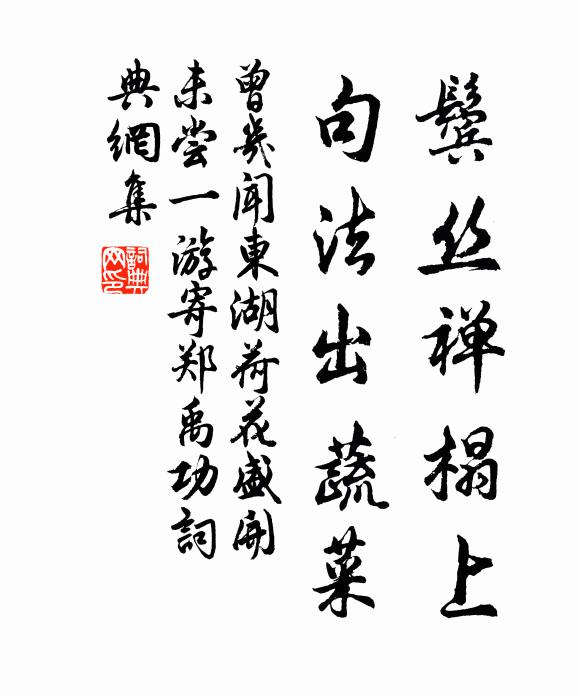 鬓丝禅榻上
句法出蔬菜
曾幾闻東湖荷花盛開
未尝一游寄郑禹功詞
典網集
詞典网印